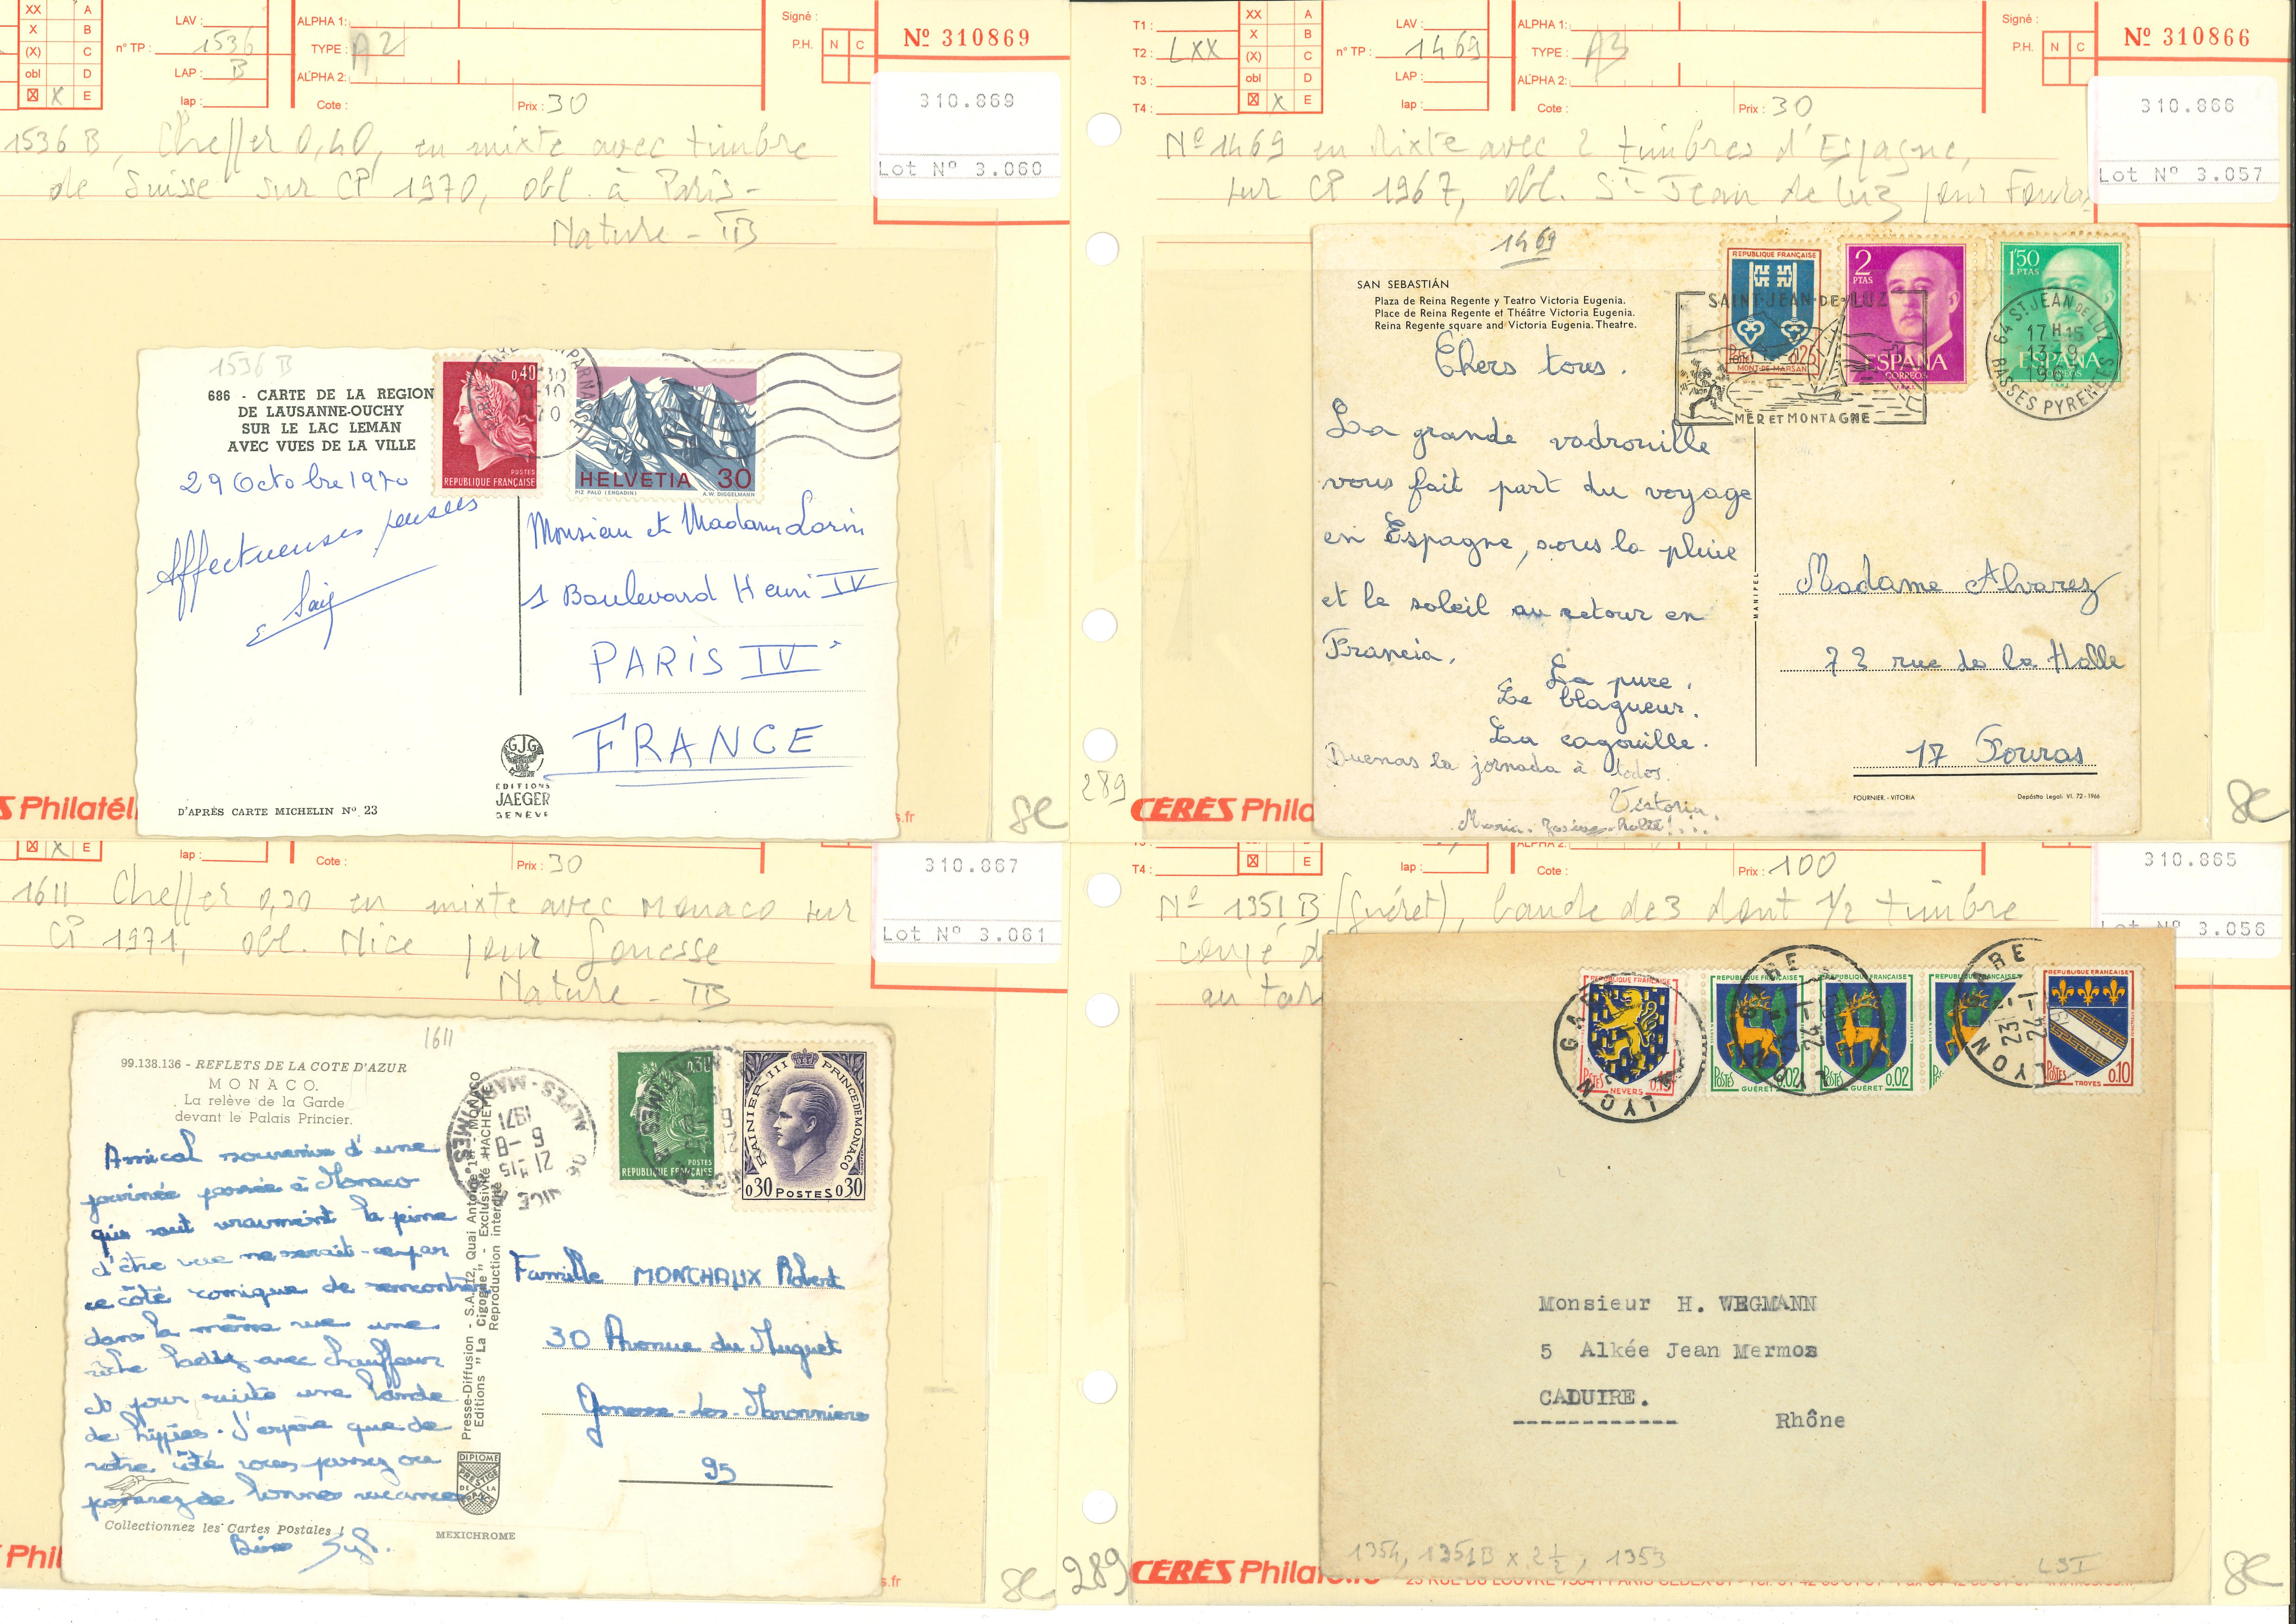 XX A
X B
(X) C
obl D
X E
LAV :
n° TP : 1536
LAP : B
lap :
ALPHA 1:
TYPE : A2
ALPHA 2:
Cote :
Prix : 30
Signé :
P.H. N C
Nº 310869
310.869
Lot Nº 3.060
1536 B, Cheffer 0,40, en mixte avec timbre
de Suisse sur CP 1970, obl. à Paris -
Nature - TB
1536 B
686 - CARTE DE LA REGION
DE LAUSANNE-OUCHY
SUR LE LAC LEMAN
AVEC VUES DE LA VILLE
29 Octobre 1970
Affectueuses pensées
0,40
POSTES
REPUBLIQUE FRANÇAISE
HELVETIA 30
PIZ PALÜ (ENGADIN) A.W. DIGGELMANN
Monsieur et Madame Lorin
1 Boulevard Henri IV
PARIS IV
FRANCE
GJG
EDITIONS
JAEGER
GENEVE
D'APRÈS CARTE MICHELIN Nº 23
S Philatél
s.fr
8C
T1 :
T2 : LXX
T3 :
T4 :
XX A
X B
(X) C
obl D
X E
LAV :
n° TP : 1469
LAP :
lap :
ALPHA 1:
TYPE : A3
ALPHA 2:
Cote :
Prix : 30
Signé :
P.H. N C
Nº 310866
310.866
Lot Nº 3.057
Nº 1469 en Mixte avec 2 timbres d'Espagne,
sur CP 1967, obl. St-Jean de Luz pour Fouras
1469
SAN SEBASTIÁN
Plaza de Reina Regente y Teatro Victoria Eugenia.
Place de Reina Regente et Théâtre Victoria Eugenia.
Reina Regente square and Victoria Eugenia. Theatre.
REPUBLIQUE FRANÇAISE
0,25
MONT-DE-MARSAN
2 PTAS
ESPAÑA
CORREOS
1'50 PTAS
ESPAÑA
CORREOS
SAINT-JEAN-DE-LUZ
MER ET MONTAGNE
64 ST JEAN DE LUZ
17 H 15
13-9
1967
BASSES PYRENEES
Chers tous.
La grande vadrouille
vous fait part du voyage
en Espagne, sous la pluie
et le soleil au retour en
Francia.
La puce.
Le blagueur.
La cagouille.
Buenas la jornada à todos.
Victoria.
MANIPEL
Madame Alvarez
73 rue de la Halle
17 Fouras
FOURNIER. - VITORIA
Depósito Legal: VI. 72 - 1966
289
CÉRÈS Phila
8C
X E
lap :
Cote :
Prix : 30
310.867
Lot Nº 3.061
1611 Cheffer 0,30 en mixte avec Monaco sur
CP 1971, obl. Nice pour Gonesse
Nature - TB
1611
99.138.136 - REFLETS DE LA COTE D'AZUR
MONACO.
La relève de la Garde
devant le Palais Princier.
Amical souvenir d'une
journée passée à Monaco
qui vaut vraiment la peine
d'être vue ne serait-ce par
ce côté comique de rencontrer
dans la même rue une
riche lady avec chauffeur
et pour suite une bande
de hippies. J'espère que de
votre côté vous passez ou
passerez de bonnes vacances
Collectionnez les Cartes Postales !
MEXICHROME
Presse-Diffusion - S.A. 12, Quai Antoine 1er - MONACO
Editions "La Cigogne" - Exclusivité HACHETTE
Reproduction interdite
DIPLOME
PRESTIGE
DE LA
FRANCE
06 NICE
21 H 15
6 - 8
1971
ALPES-MARITIMES
0,30
POSTES
REPUBLIQUE FRANÇAISE
RAINIER III PRINCE DE MONACO
0,30 POSTES 0,30
Famille MONCHAUX Robert
30 Avenue du Muguet
Gonesse-les-Maronniers
95
Phil
s.fr
8C
T4 :
E
lap :
ALPHA 2:
Cote :
Prix : 100
310.865
Lot Nº 3.056
Nº 1351 B (Guéret), bande de 3 dont 1/2 timbre
coupé
au tar
REPUBLIQUE FRANÇAISE
POSTES 0,15
NEVERS
REPUBLIQUE FRANÇAISE
POSTES 0.02
GUÉRET
REPUBLIQUE FRANÇAISE
POSTES 0.02
GUÉRET
REPUBLIQUE FRANÇAISE
POSTES 0.10
TROYES
LYON GARE
LYON GARE
LYON GARE
Monsieur H. WEGMANN
5 Alkée Jean Mermoz
CALUIRE.
Rhône
1354, 1351B x 2 1/2, 1353
LSI
289
CÉRÈS Philatélie
8C